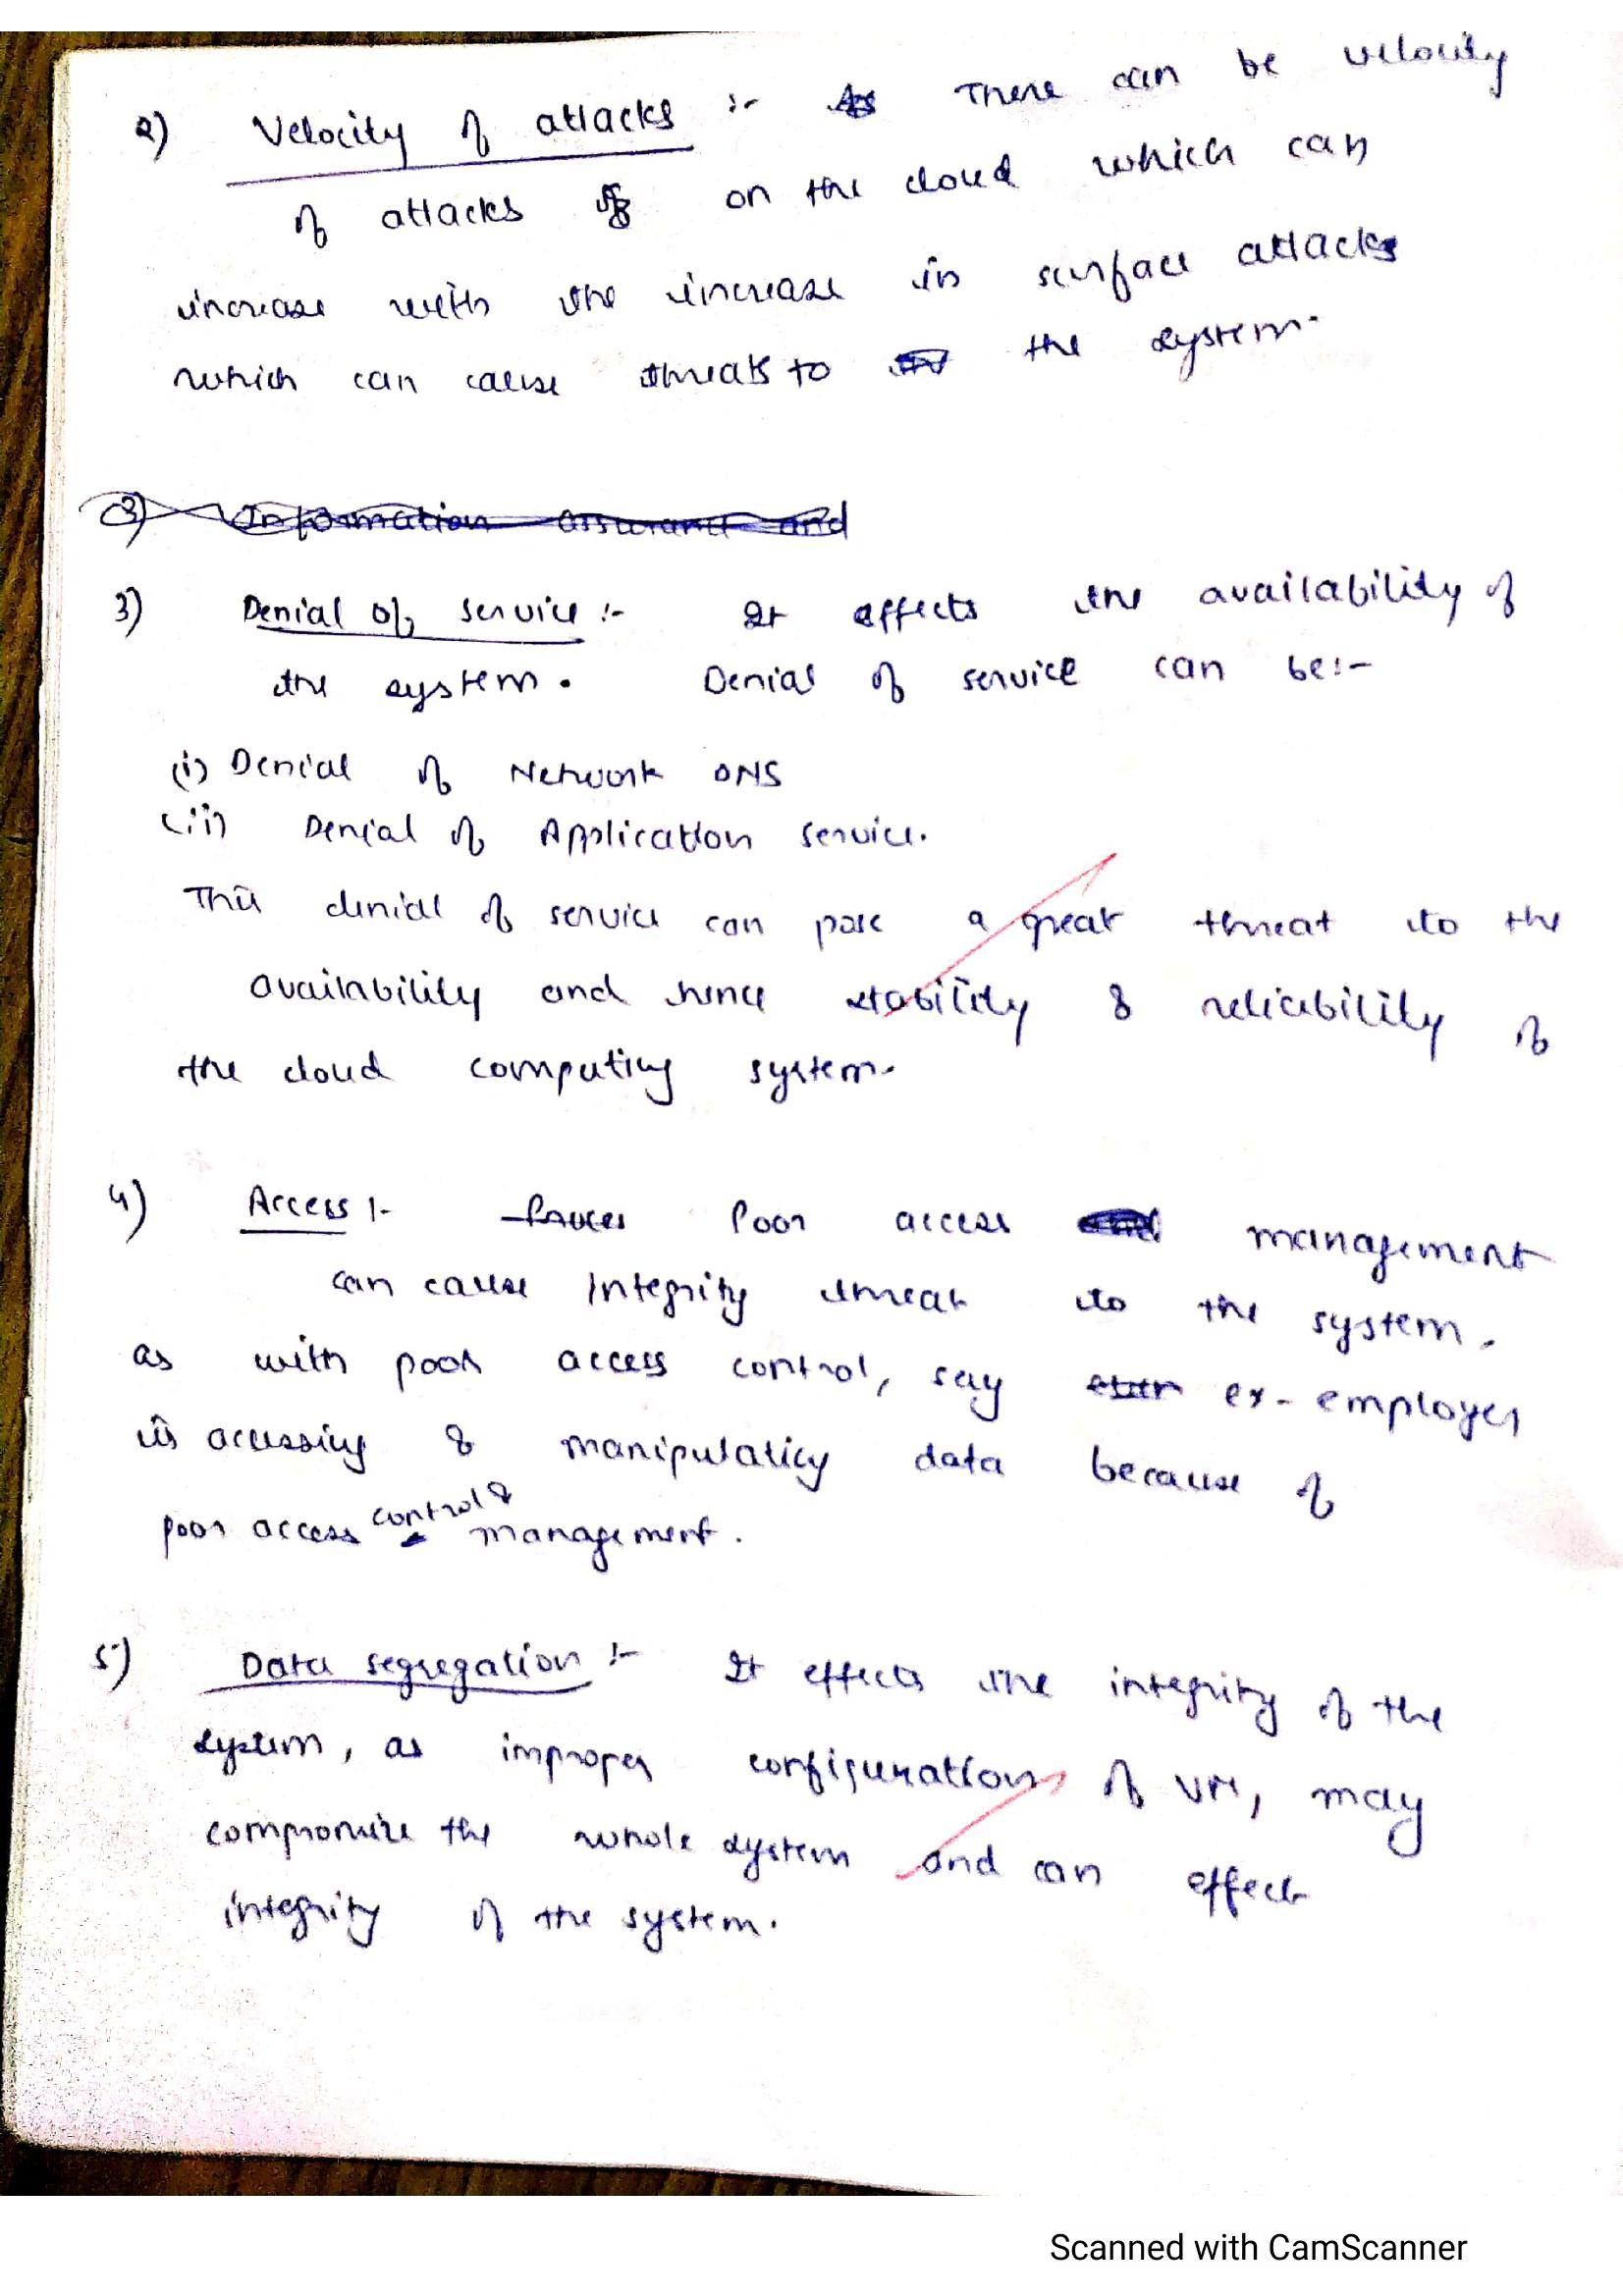 2) Velocity of attacks :- There can be velocity
of attacks on the cloud which can
increase with the increase in surface attacks
which can cause threats to the system.
3) Information assurance and
3) Denial of service :- It affects the availability of
the system. Denial of service can be:-
(i) Denial of Network DNS
(ii) Denial of Application service.
This denial of service can pose a great threat to the
availability and hence stability & reliability of
the cloud computing system.
4) Access :- Poor access management
can cause Integrity threat to the system.
as with poor access control, say ex-employer
is accessing & manipulaticy data because of
poor access control & management.
5) Data segregation :- It effects the integrity of the
system, as improper configuration of VM, may
compromize the whole system and can effect
integrity of the system.
Scanned with CamScanner